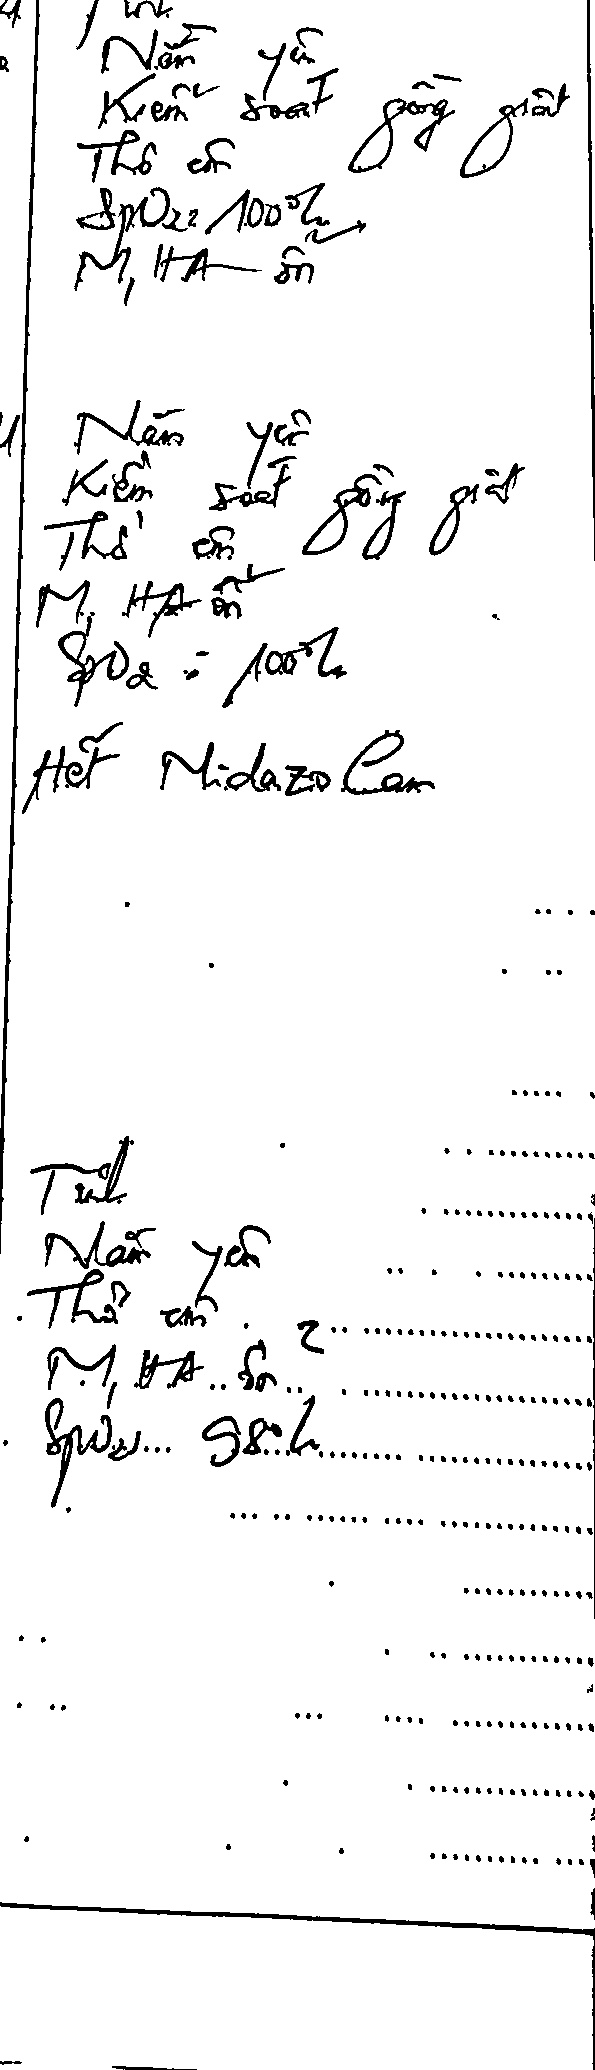 Nằm yên
Kiểm soát gồng giật
Thở êm
SpO2: 100%
M, HA ổn
Nằm yên
Kiểm soát gồng giật
Thở êm
M, HA ổn
SpO2 = 100%
Hết Midazolam
Tỉnh
Nằm yên
Thở êm
M, HA ổn
SpO2 98%